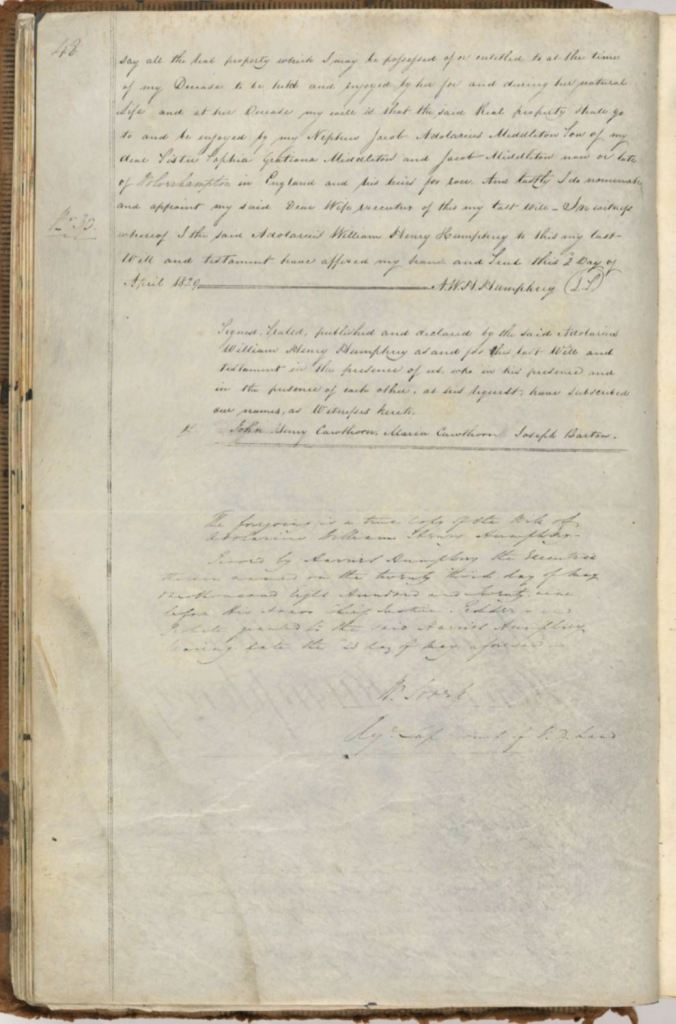 48
say all the real property which I may be possessed of or entitled to at the time
of my Decease to be held and enjoyed by her for and during her natural
Life and at her Decease my will is that the said Real property shall go
to and be enjoyed by my Nephew Jacob Adolarius Middleton Son of my
dear Sister Sophia Gratiana Middleton and Jacob Middleton now or late
of Wolverhampton in England and his heirs for ever. And lastly I do nominate
and appoint my said Dear Wife executrix of this my last Will - In witness
whereof I the said Adolarius William Henry Humphrey to this my last
Will and testament have affixed my hand and Seal this 2 Day of
April 1829 A.W.H. Humphrey (LS)
Signed, Sealed, published and declared by the said Adolarius
William Henry Humphrey as and for his last Will and
testament in the presence of us who in his presence and
in the presence of each other, at his request, have subscribed
our names, as Witnesses hereto.
John Henry Cawthorn, Maria Cawthorn Joseph Barrow.
The foregoing is a true Copy of the Will of
Adolarius William Henry Humphrey.
Proved by Harriet Humphrey the Executrix
therein named on the twenty third day of May
One thousand Eight Hundred and twenty nine
before His Honor Chief Justice Pedder and
Probate granted to the said Harriet Humphrey
bearing date the 23 day of May aforesaid
W. Sorell